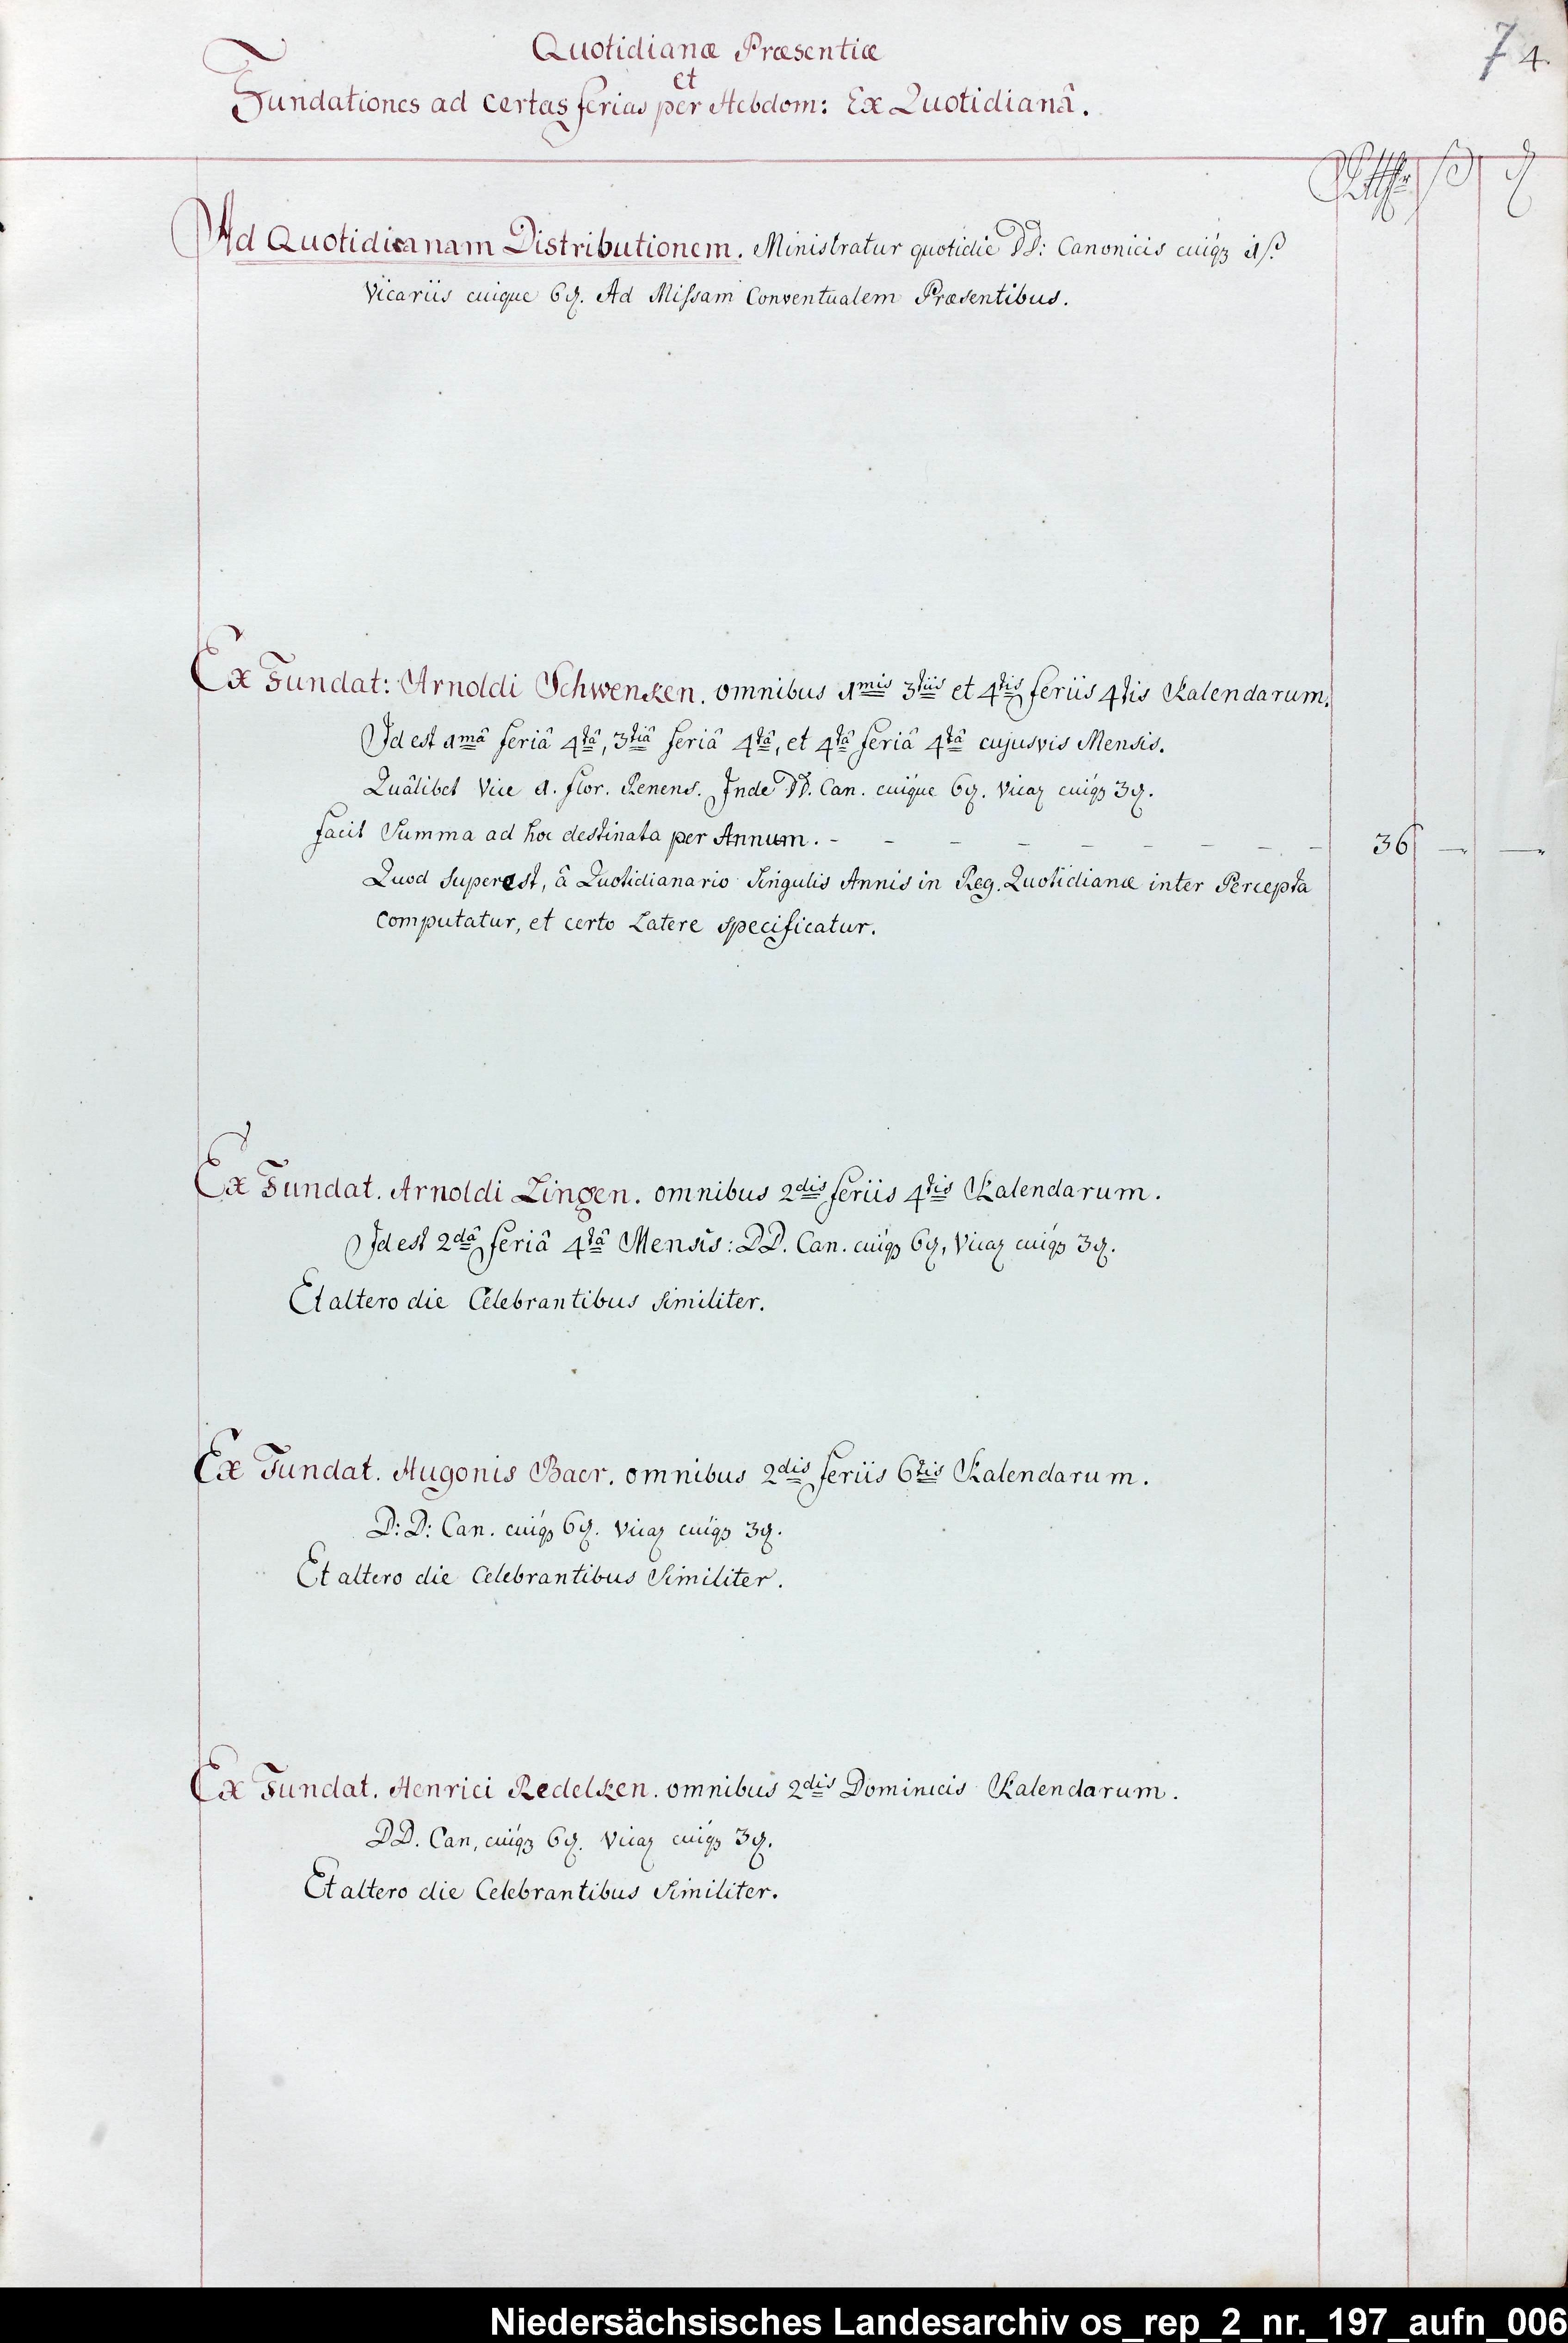 Quotidianæ Præsentiæ
7 4.
et
Fundationes ad certas ferias per Hebdom: Ex Quotidianâ.
Rthlr ß ₰
Ad Quotidianam Distributionem. Ministratur quotidie DD: Canonicis cuiqꝫ 1ß.
Vicariis cuique 6₰. Ad Missam Conventualem Præsentibus.
Ex Fundat: Arnoldi Schwenken. omnibus 1mis 3tiis et 4tis feriis 4tis Kalendarum.
Id est 1mâ feriâ 4tâ, 3tiâ feriâ 4tâ, et 4tâ feriâ 4tâ cujusvis Mensis.
Quâlibet Vice 1. flor. Renens. Inde DD. Can. cuique 6₰. Vicaꝝ cuiqꝫ 3₰.
facit Summa ad hoc destinata per Annum. - - - - - - - - - 36 — —
Quod superest, â Quotidianario Singulis Annis in Reg. Quotidianæ inter Percepta
Computatur, et certo Latere specificatur.
Ex Fundat. Arnoldi Lingen. omnibus 2dis feriis 4tis Kalendarum.
Id est 2dâ feriâ 4tâ Mensis: DD. Can. cuiqꝫ 6₰, Vicaꝝ cuiqꝫ 3₰.
Et altero die Celebrantibus Similiter.
Ex Fundat. Hugonis Baer. omnibus 2dis feriis 6tis Kalendarum.
D: D: Can. cuiqꝫ 6₰. Vicaꝝ cuiqꝫ 3₰.
Et altero die Celebrantibus Similiter.
Ex Fundat. Henrici Redelken. omnibus 2dis Dominicis Kalendarum.
DD. Can, cuiqꝫ 6₰. Vicaꝝ cuiqꝫ 3₰.
Et altero die Celebrantibus Similiter.
Niedersächsisches Landesarchiv os_rep_2_nr._197_aufn_006